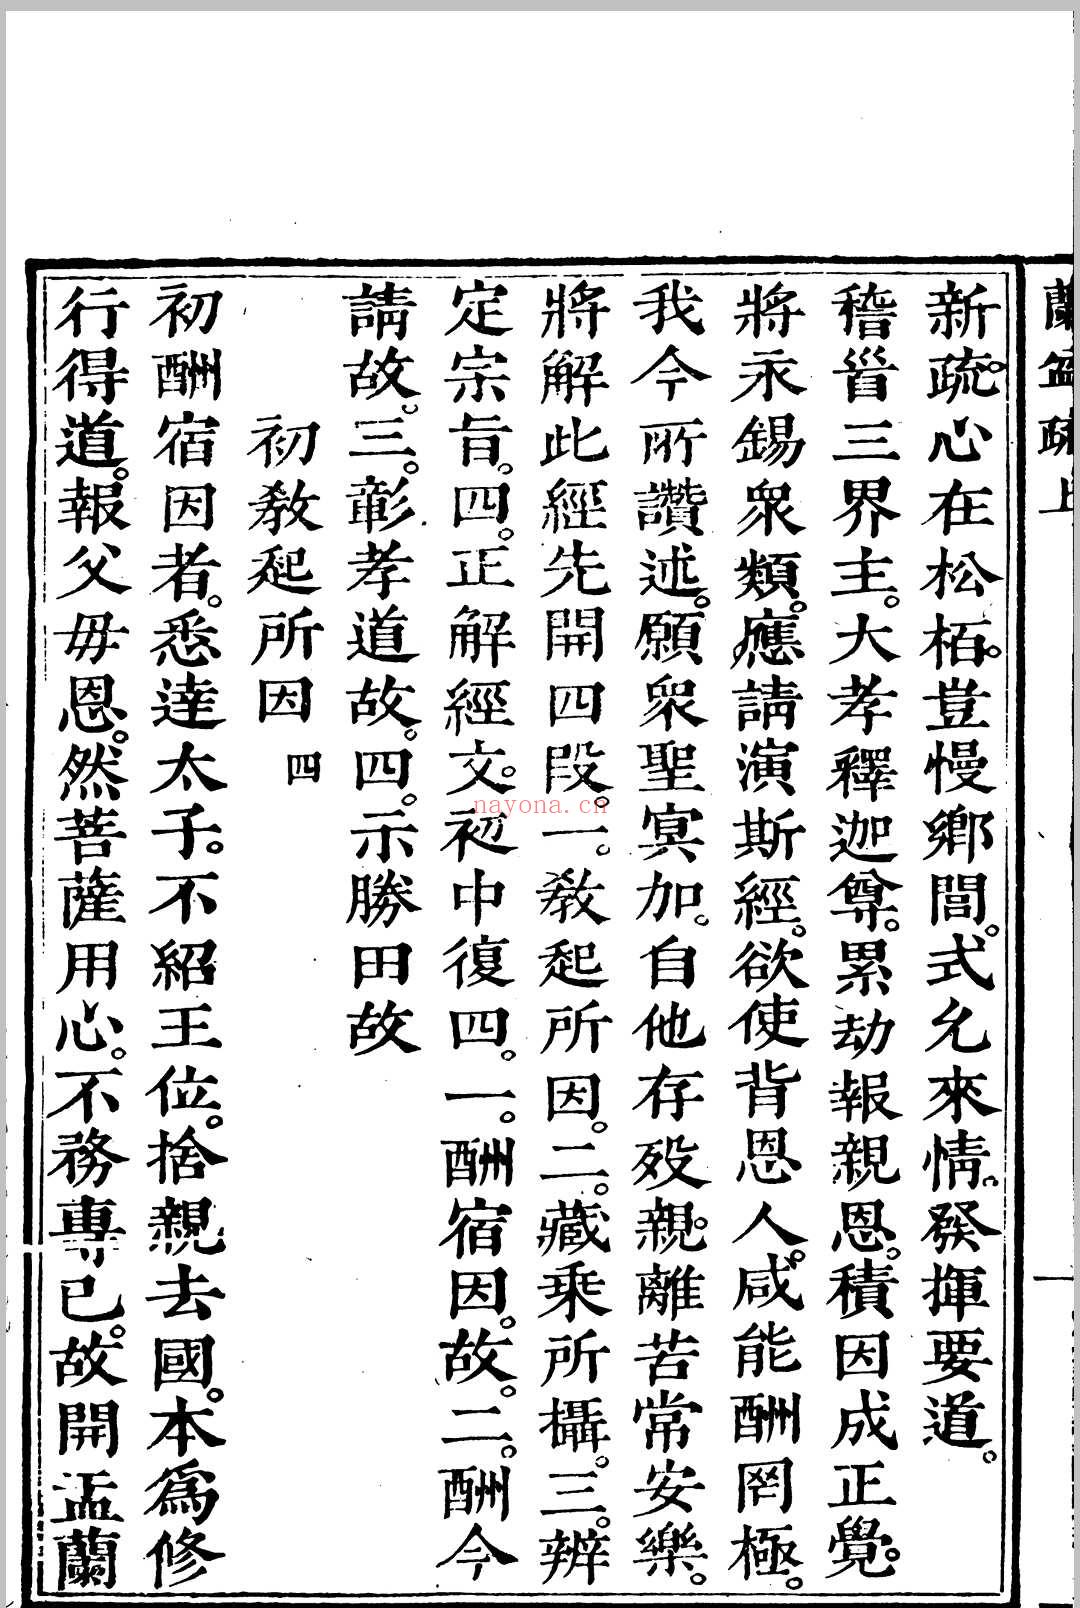 蘭盆疏上
一
新疏。心在松栢。豈慢鄉閭。式允來情。發揮要道。
稽首三界主。大孝釋迦尊。累劫報親恩。積因成正覺。
將永錫衆類。應請演斯經。欲使背恩人。咸能酬罔極。
我今所讚述。願衆聖冥加。自他存歿親。離苦常安樂。
將解此經先開四段。一。教起所因。二。藏乘所攝。三。辨
定宗旨。四。正解經文。初中復四。一。酬宿因。故。二。酬今
請故。三。彰孝道故。四。示勝田故
初教起所因 四
初酬宿因者。悉達太子。不紹王位。捨親去國。本爲修
行得道。報父毋恩。然菩薩用心。不務專己。故開盂蘭
nayona.cn